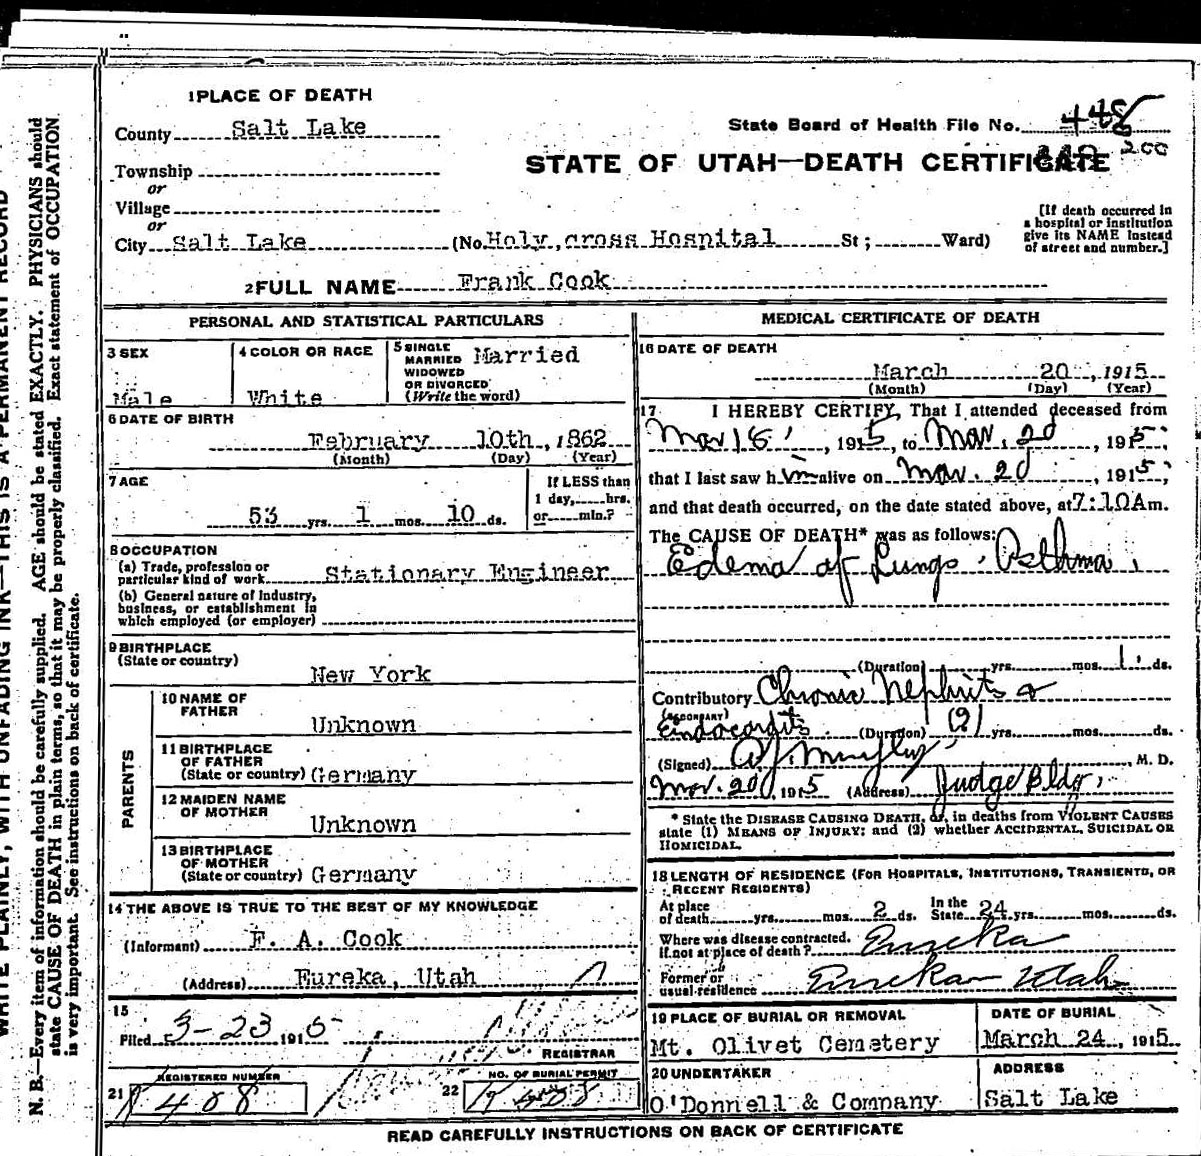 1 PLACE OF DEATH
County Salt Lake
State Board of Health File No. 448
200
STATE OF UTAH—DEATH CERTIFICATE
Township
or
Village
or
City Salt Lake (No. Holy, cross Hospital St; Ward)
[If death occurred in
a hospital or institution
give its NAME instead
of street and number.]
2 FULL NAME Frank Cook
PERSONAL AND STATISTICAL PARTICULARS
3 SEX
Male
4 COLOR OR RACE
White
5 SINGLE
MARRIED
WIDOWED
OR DIVORCED
(Write the word)
Married
6 DATE OF BIRTH
February 10th, 1862
(Month) (Day) (Year)
7 AGE
53 yrs. 1 mos. 10 ds.
If LESS than
1 day, hrs.
or min.?
8 OCCUPATION
(a) Trade, profession or
particular kind of work Stationary Engineer
(b) General nature of Industry,
business, or establishment in
which employed (or employer)
9 BIRTHPLACE
(State or country)
New York
PARENTS
10 NAME OF
FATHER
Unknown
11 BIRTHPLACE
OF FATHER
(State or country) Germany
12 MAIDEN NAME
OF MOTHER
Unknown
13 BIRTHPLACE
OF MOTHER
(State or country) Germany
14 THE ABOVE IS TRUE TO THE BEST OF MY KNOWLEDGE
(Informant) F. A. Cook
(Address) Eureka, Utah
15
Filed 3-23 1915
REGISTRAR
REGISTERED NUMBER
21 408
NO. OF BURIAL PERMIT
22 408
MEDICAL CERTIFICATE OF DEATH
16 DATE OF DEATH
March 20, 1915
(Month) (Day) (Year)
17 I HEREBY CERTIFY, That I attended deceased from
Mar 18, 1915, to Mar. 20, 1915,
that I last saw him alive on Mar. 20, 1915;
and that death occurred, on the date stated above, at 7:10 A m.
The CAUSE OF DEATH* was as follows:
Edema of Lungs. Asthma.
(Duration) yrs. mos. 1 ds.
Contributory Chronic Nephritis &
(SECONDARY)
Endocarditis. (Duration) (2) yrs. mos. ds.
(Signed) M. D.
Mar. 20, 1915 (Address) Judge Bldg.
* State the DISEASE CAUSING DEATH, or, in deaths from VIOLENT CAUSES
state (1) MEANS OF INJURY; and (2) whether ACCIDENTAL, SUICIDAL OR
HOMICIDAL.
18 LENGTH OF RESIDENCE (FOR HOSPITALS, INSTITUTIONS, TRANSIENTS, OR
RECENT RESIDENTS)
At place
of death yrs. mos. 2 ds. In the State 24 yrs. mos. ds.
Where was disease contracted.
if not at place of death? Eureka
Former or
usual residence Eureka Utah
19 PLACE OF BURIAL OR REMOVAL
Mt. Olivet Cemetery
DATE OF BURIAL
March 24, 1915
20 UNDERTAKER
O'Donnell & Company
ADDRESS
Salt Lake
READ CAREFULLY INSTRUCTIONS ON BACK OF CERTIFICATE
WRITE PLAINLY, WITH UNFADING INK—THIS IS A PERMANENT RECORD
N. B.—Every item of information should be carefully supplied. AGE should be stated EXACTLY. PHYSICIANS should
state CAUSE OF DEATH in plain terms, so that it may be properly classified. Exact statement of OCCUPATION
is very important. See instructions on back of certificate.